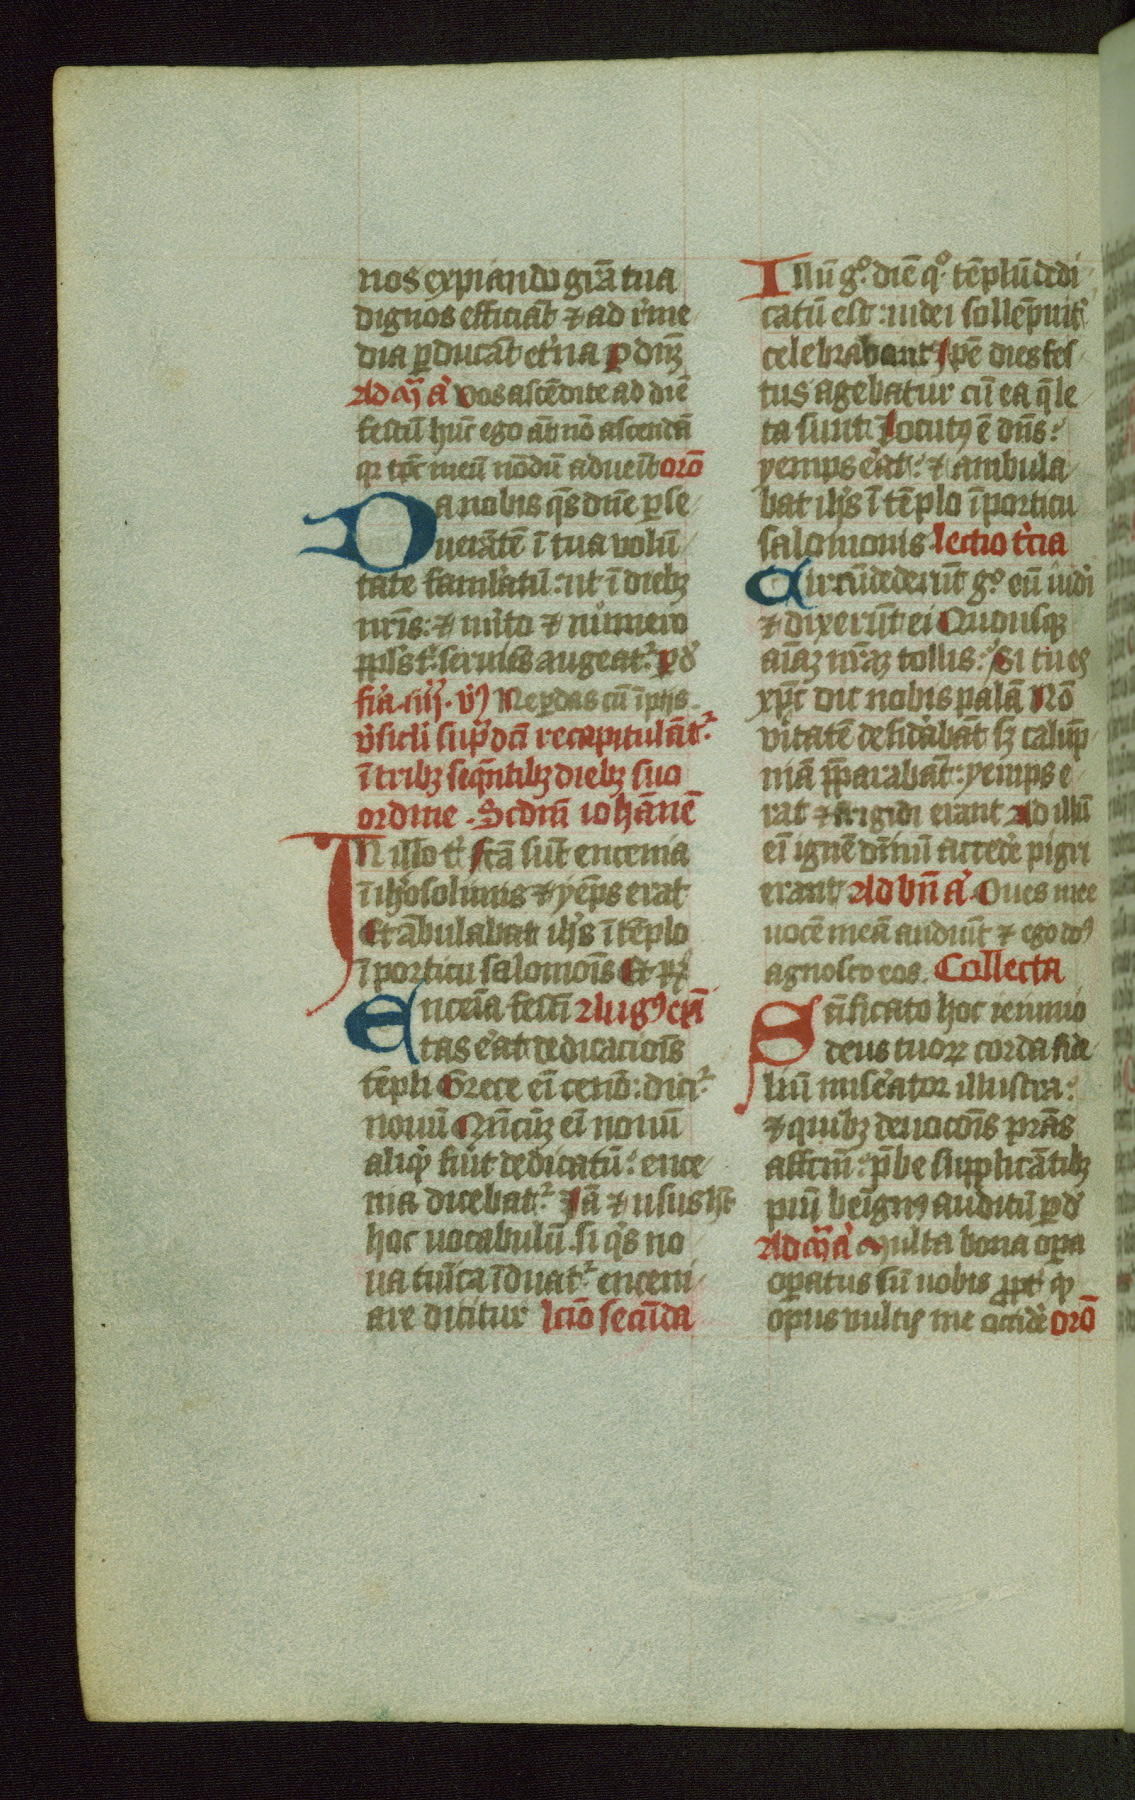 nos expiando gr̄a tua
dignos efficiāt ⁊ ad r̍me
dia ꝑducāt et̍na P dn̄ꝫ
Ad m̄ a̍ Vos ascēdite ad diē
festū hūc ego āt nō ascendā
q̄ tp̄c meū nōdū aduēit orō
Da nobis q̄s dn̄e ꝑse
uerātē ī tua volū
tate famlatū: ut ī diebꝫ
nr̄is: ⁊ mito ⁊ numero
ppl̄s t̍ seruiēs augeat̍ ꝑ d̄
fīa .iiij. v̍ Ne ꝑdas cū īpijs
v̍siculi sup̄dc̄i recapitulāt̍
ī tribꝫ seqn̄tibꝫ diebꝫ suo
ordine . Scd̄m iohānē
In illo t̍ fc̄a sūt encenia
ī ih̄rosolimis ⁊ yēps erat
Et ābulabat ih̄s ī tēplo
ī porticu salomōis Et r̄
Encēia festī Augꝰ cx̄i
tas e̍at dedicaciōis
tēpli Grece eī cenō: dici̍
nouū Qn̄cūꝫ eī nouū
aliqͩ fu̍it dedicatū: ence
nia dicebat̍ Iā ⁊ usus hꝫ
hoc uocabulū. si q̍s no
ua tuīca īduat̍ enceni
are dicitur lc̄io secūda
Illū g̊ diē q̊ tēplū dedi
catū est: iudei sollēpnit̍
celebrabant Ipē dies fes
tus agebatur cū ea q̄ le
ta sunt Locutꝰ ē dn̄s:
yemps e̍at: ⁊ ambula
bat ih̄s ī tēplo ī porticu
salomonis lectio t̍cia
Circūdederūt g̊ eū iud̍i
⁊ dixerūt ei Quousqꝫ
aīaꝫ nr̄aꝫ tollis: Si tu es
xp̄c dic nobis palā Nō
v̍itatē desid̍abāt sꝫ calūp
niā p̄parabāt: yemps e
rat ⁊ frigidi erant Ad illū
eī ignē diuinū acced̍e pigri
erant Ad bn̄ a̍ Oues mee
uocē meā audiūt ⁊ ego dn̄s
agnosco eos. Collecta
Sāificato hoc ieiunio
deus tuorꝝ corda fide
liū mis̍ator illustra:
⁊ quibꝫ deuociōis p̄stas
affc̄m: p̄be supplicātibꝫ
piū beīgnꝰ auditū ꝑ d̄
Ad m̄ a̍ Multa bona oꝑa
oꝑatus sū uobis ꝓpt̍ qͩ
opus uultis me occid̍e orō